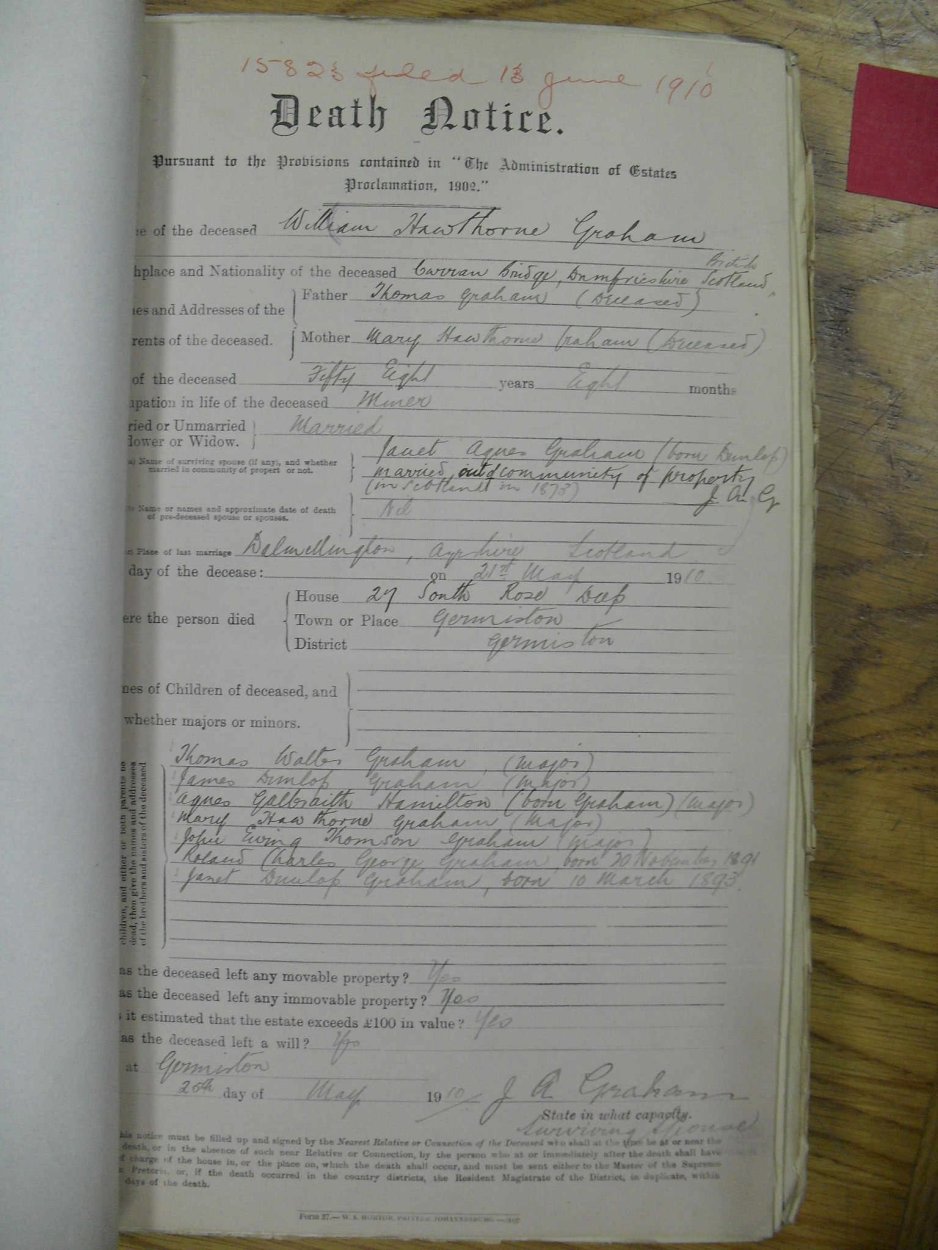 15823 filed 13 June 1910
Death Notice.
Pursuant to the Provisions contained in "The Administration of Estates
Proclamation, 1902."
e of the deceased William Hawthorne Graham
British
hplace and Nationality of the deceased Carran Bridge, Dumfrieshire Scotland,
Father Thomas Graham (Deceased)
es and Addresses of the
rents of the deceased. Mother Mary Hawthorne Graham (Deceased)
of the deceased Fifty Eight years Eight months
upation in life of the deceased Miner
ried or Unmarried Married
dower or Widow.
Janet Agnes Graham (born Dunlop)
a) Name of surviving spouse (if any), and whether
married in community of propert or not. married out of community of property
(in Scotland in 1873) J. A. G
Name or names and approximate date of death Nil
of pre-deceased spouse or spouses.
Place of last marriage Dalmellington, Ayrshire Scotland
day of the decease: on 21st May 1910
House 27 South Rose Deep
ere the person died Town or Place Germiston
District Germiston
mes of Children of deceased, and
whether majors or minors.
children, and either or both parents be
dead, then give the names and addresses
of the brothers and sisters of the deceased
Thomas Walter Graham (major)
James Dunlop Graham (major)
Agnes Galbraith Hamilton (born Graham) (major)
Mary Hawthorne Graham (major)
John Ewing Thomson Graham (major)
Roland Charles George Graham, born 20 November 1891
Janet Dunlop Graham, born 10 March 1893
as the deceased left any movable property? Yes
as the deceased left any immovable property? Yes
s it estimated that the estate exceeds £100 in value? Yes
as the deceased left a will? Yes
at Germiston
26th day of May 1910 J A Graham
State in what capacity.
Surviving Spouse
his notice must be filled up and signed by the Nearest Relative or Connection of the Deceased who shall at the time be at or near the
death, or in the absence of such near Relative or Connection, by the person who at or immediately after the death shall have
f charge of the house in, or the place on, which the death shall occur, and must be sent either to the Master of the Supreme
n Pretoria, or, if the death occurred in the country districts, the Resident Magistrate of the District, in duplicate, within
days of the death.
Form 27.—W. E. HORTOR, PRINTER, JOHANNESBURG.